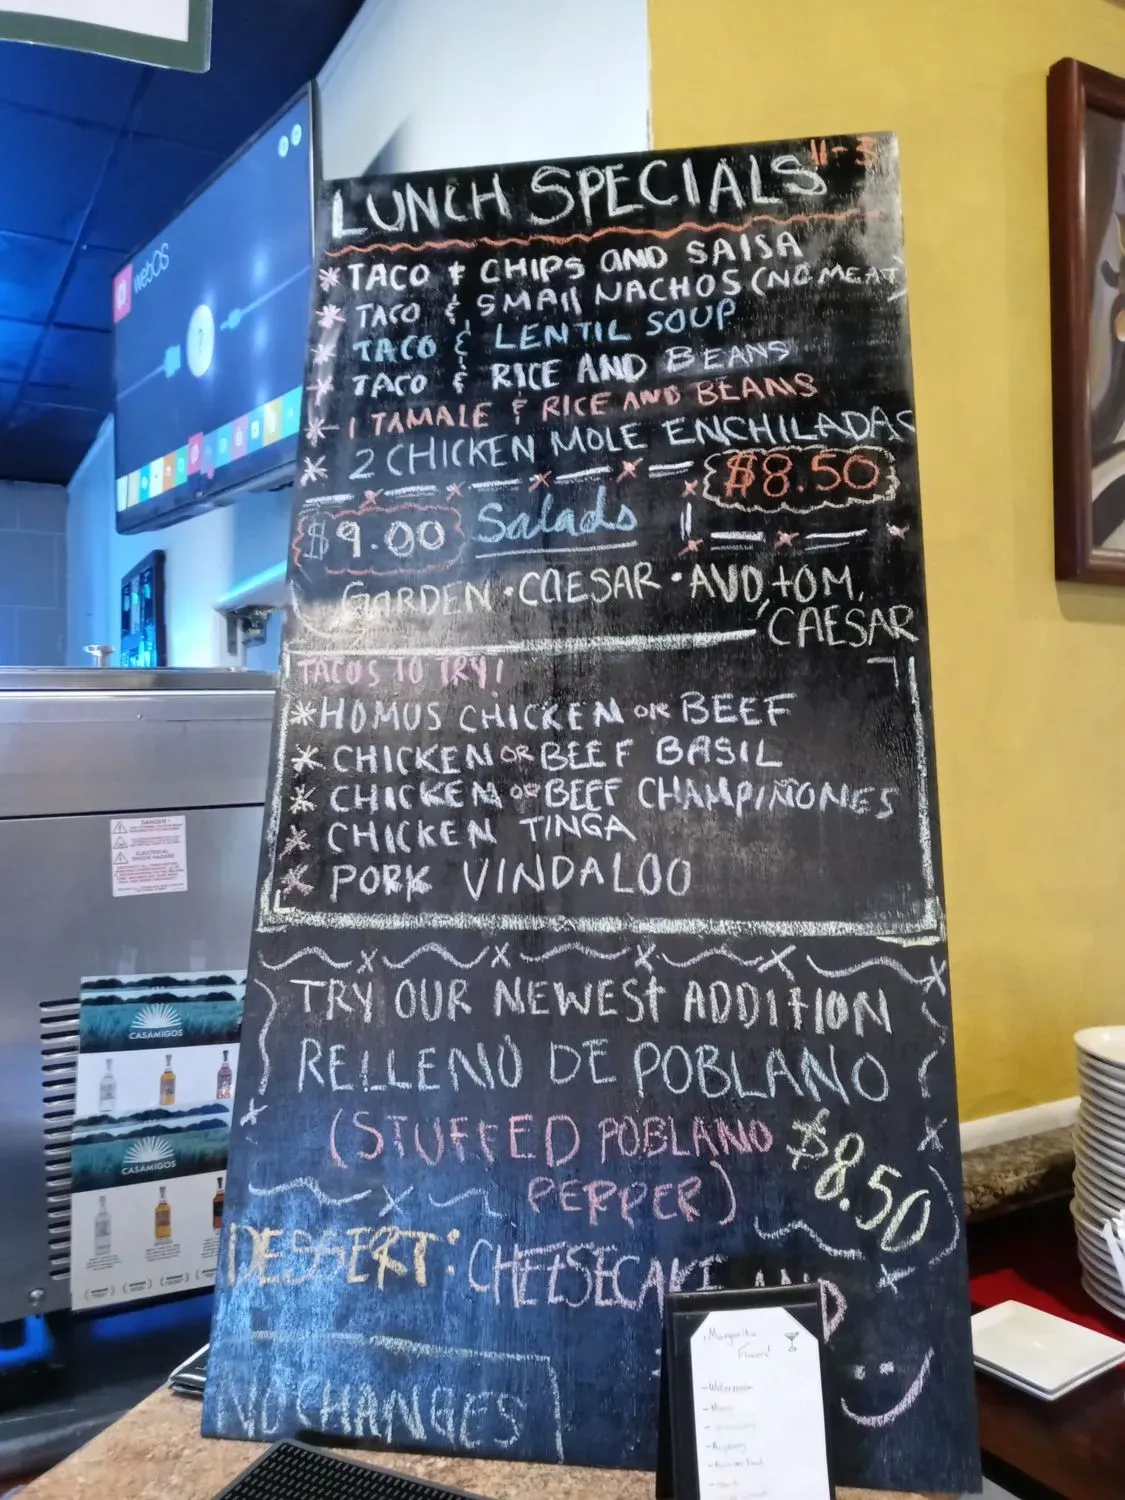 LUNCH SPECIALS 11-3
* TACO & CHIPS AND SALSA
* TACO & SMALL NACHOS (NO MEAT)
* TACO & LENTIL SOUP
* TACO & RICE AND BEANS
* 1 TAMALE & RICE AND BEANS
* 2 CHICKEN MOLE ENCHILADAS
$8.50
$9.00 Salads
GARDEN • CAESAR • AVO, TOM,
CAESAR
TACOS TO TRY!
* HOMUS CHICKEN OR BEEF
* CHICKEN OR BEEF BASIL
* CHICKEN OR BEEF CHAMPIÑONES
* CHICKEN TINGA
* PORK VINDALOO
TRY OUR NEWEST ADDITION
RELLENO DE POBLANO
(STUFFED POBLANO
PEPPER)
$8.50
DESSERT: CHEESECAKE AND
NO CHANGES
webOS
?
DANGER!
ELECTRICAL
SHOCK HAZARD
CASAMIGOS
CASAMIGOS
Margarita
Flavors!
- Watermelon
- Mango
- Raspberry